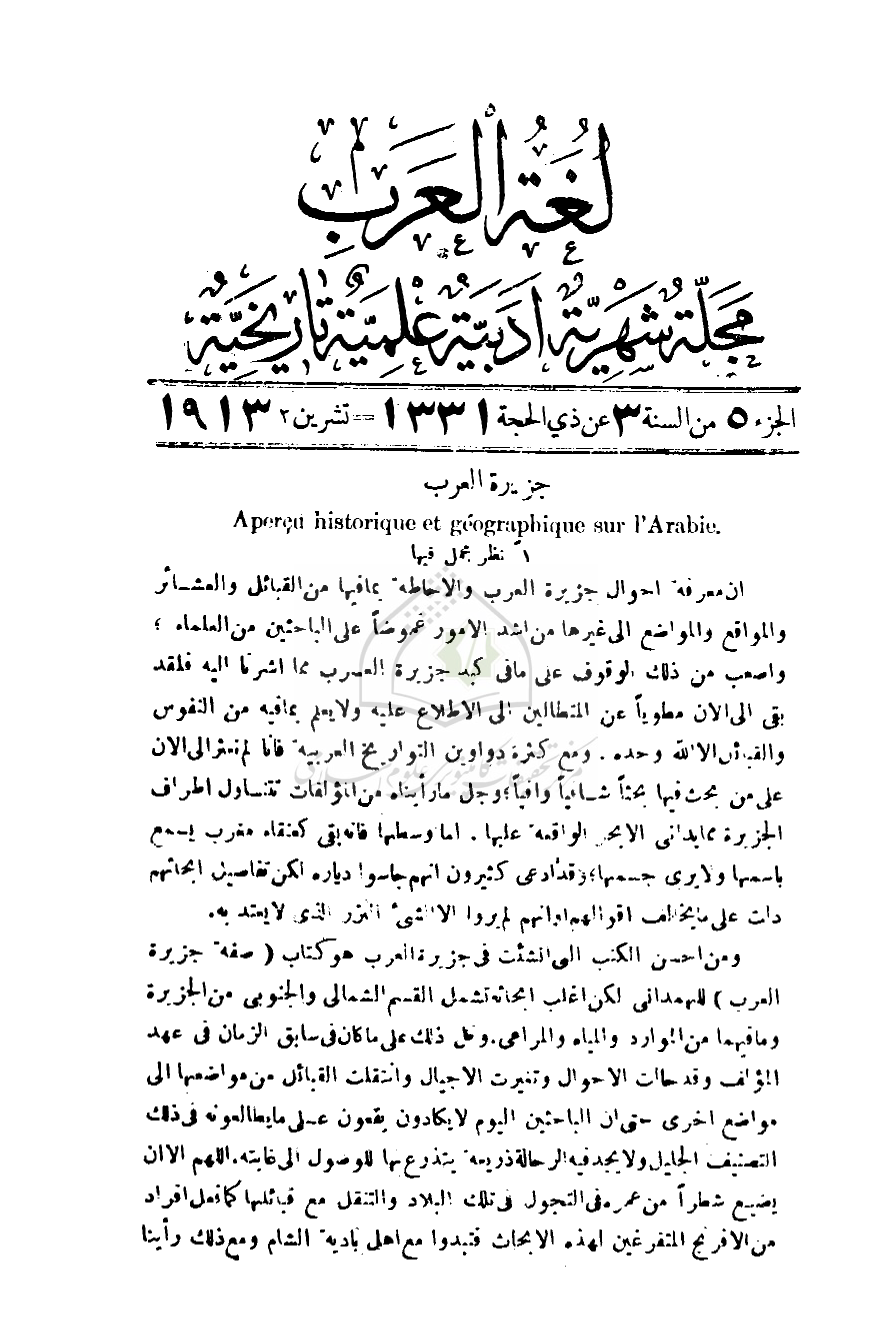 لُغَةُ الْعَرَبِ
مَجَلَّةٌ شَهْرِيَّةٌ اَدَبِيَّةٌ عِلْمِيَّةٌ تَارِيخِيَّةٌ
الجزء ٥ من السنة ٣ عن ذي الحجة ١٣٣١ = تشرين ٢ ١٩١٣
جزيرة العرب
Aperçu historique et géographique sur l'Arabie.
١ً نظر مجمل فيها
ان معرفة احوال جزيرة العرب والاحاطة بمافيها من القبائل والعشائر
والمواقع والمواضع الى غيرها من اشد الامور غموضاً على الباحثين من العلماء ؛
واصعب من ذلك الوقوف على مافى كبد جزيرة العرب مما اشرنا اليه فلقد
بقى الى الان مطوياً عن المتطالين الى الاطلاع عليه ولايعلم بمافيه من النفوس
والقبائل الا الله وحده . ومع كثرة دواوين التواريخ العربية فانا لم نعثر الى الان
على من بحث فيها بحثاً شافياً وافياً ؛ وجل مارأيناه من المؤلفات تتناول اطراف
الجزيرة ممايدانى الابحر الواقعة عليها . اما وسطها فانه بقى كعنقاء مغرب يسمع
باسمها ولايرى جسمها؛ وقد أدعى كثيرون انهم جاسوا دياره لكن تفاصيل ابحاثهم
دلت على مايخالف اقوالهم اوانهم لم يروا الا الشئ النزر الذي لايعتد به.
ومن احسن الكتب التى انشئت فى جزيرة العرب هو كتاب ( صفة جزيرة
العرب ) للهمدانى لكن اغلب ابحاثه تشمل القسم الشمالى والجنوبى من الجزيرة
ومافيهما من الموارد والمياه والمراعى. وكل ذلك على ماكان فى سابق الزمان فى عهد
المؤلف وقد حالت الاحوال وتغيرت الاجيال وانتقلت القبائل من مواضعها الى
مواضع اخرى حتى ان الباحثين اليوم لايكادون يقعون على مايطالعونه فى ذلك
التصنيف الجليل ولايجد فيه الرحالة ذريعة يتذرع بها للوصول الى غايته. اللهم الا ان
يضيع شطراً من عمره فى التجول فى تلك البلاد والتنقل مع قبائلها كما فعل افراد
من الافرنج المتفرغين لهذه الابحاث فتبدوا مع اهل بادية الشام ومع ذلك رأينا